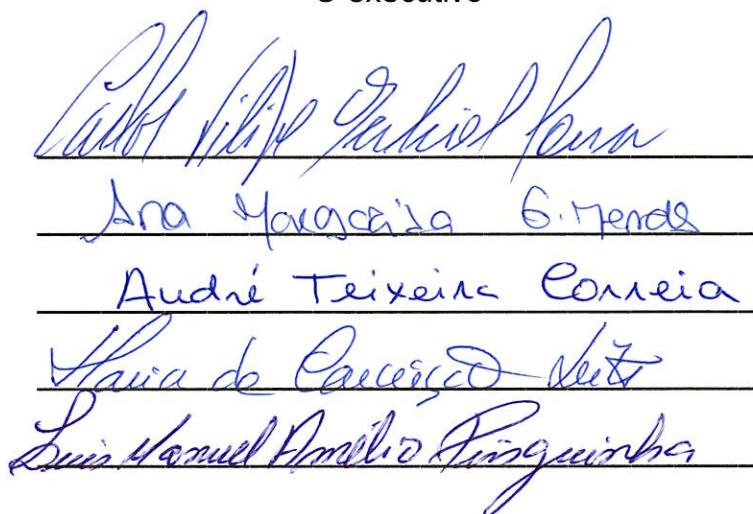 O executivo
Carlos Filipe
Ana Margarida G. Mendes
André Teixeira Correia
Maria da Conceição
Luis Manuel Amélio Pinguinha